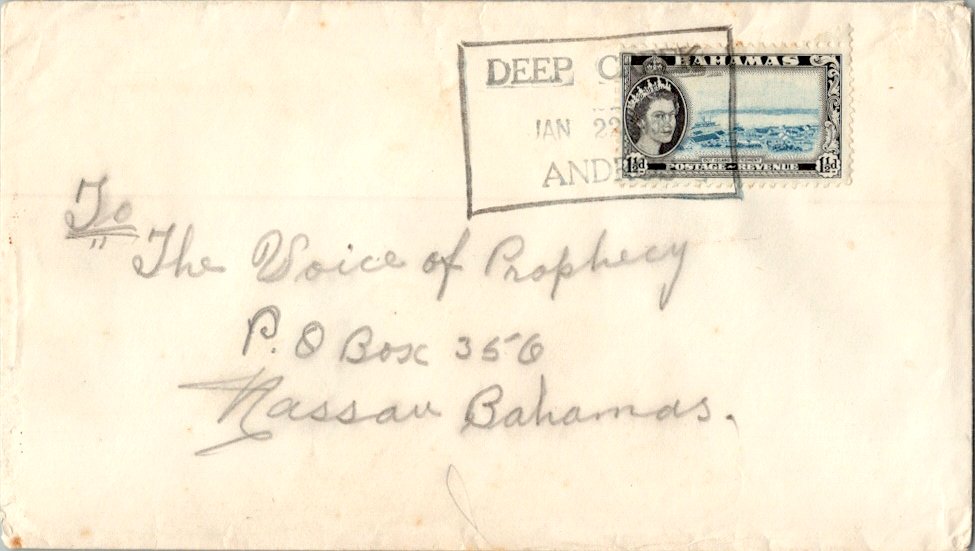 DEEP CREEK
JAN 22
ANDROS
BAHAMAS
1½d POSTAGE REVENUE 1½d
To
The Voice of Prophecy
P.O Box 356
Nassau Bahamas.